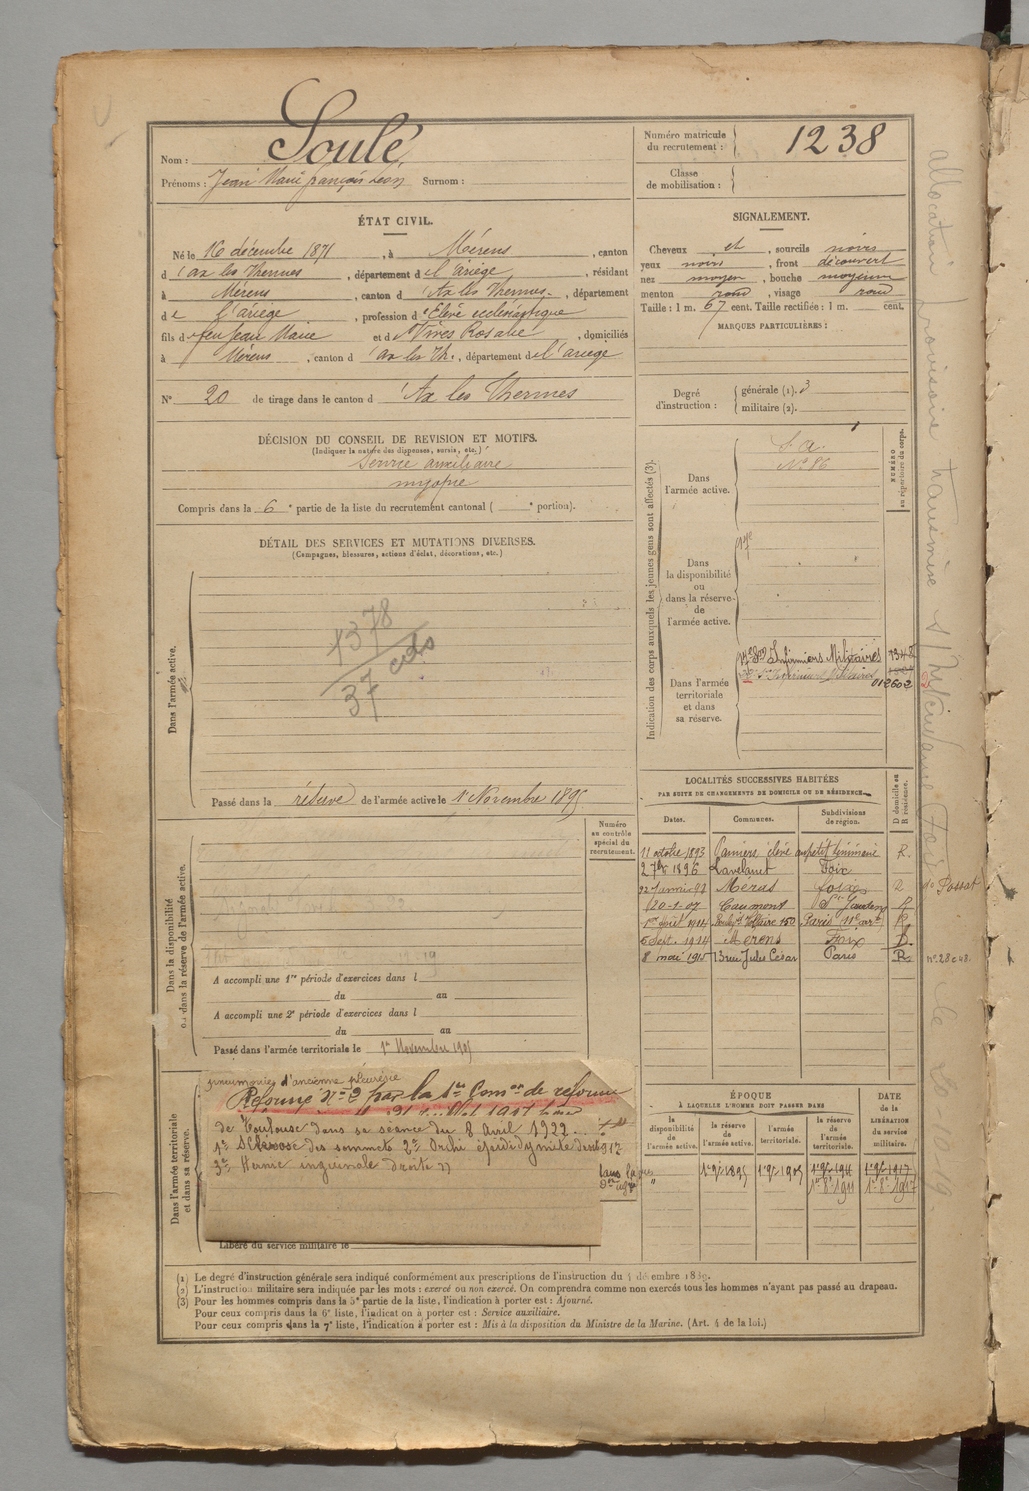 Nom : Soulé
Prénoms : Jean Marie françois Léon Surnom :
Numéro matricule du recrutement : 1238
Classe de mobilisation :
ÉTAT CIVIL.
Né le 16 décembre 1871, à Mérens, canton
d'ax les Thermes, département de l'ariège, résidant
à Mérens, canton d'Ax les Thermes, département
de l'ariège, profession d'Elève ecclésiastique
fils de feu Jean Marie et de Vives Rosalie, domiciliés
à Mérens, canton d'ax les Th., département de l'ariege
N° 20 de tirage dans le canton d'Ax les Thermes
SIGNALEMENT.
Cheveux et, sourcils noirs
yeux noirs, front découvert
nez moyen, bouche moyenne
menton rond, visage rond
Taille : 1 m. 67 cent. Taille rectifiée : 1 m. cent.
MARQUES PARTICULIÈRES :
Degré d'instruction : générale (1). 3
militaire (2).
DÉCISION DU CONSEIL DE REVISION ET MOTIFS.
(Indiquer la nature des dispenses, sursis, etc.)
Service auxiliaire
myopie
Compris dans la 6e partie de la liste du recrutement cantonal ( e portion).
DÉTAIL DES SERVICES ET MUTATIONS DIVERSES.
(Campagnes, blessures, actions d'éclat, décorations, etc.)
Dans l'armée active.
1378
37
Passé dans la réserve de l'armée active le 1er Novembre 1895
Indication des corps auxquels les jeunes gens sont affectés (3).
NUMÉRO au répertoire du corps.
Dans l'armée active.
S. A.
N° 86
Dans la disponibilité ou dans la réserve de l'armée active.
17e
Dans l'armée territoriale et dans sa réserve.
17e Son Infirmiers Militaires
012602
LOCALITÉS SUCCESSIVES HABITÉES
PAR SUITE DE CHANGEMENTS DE DOMICILE OU DE RÉSIDENCE.
Dates. Communes. Subdivisions de région. D domicile ou R résidence.
11 octobre 1893 Pamiers élève au petit séminaire R.
2 7bre 1896 Lavelanet Foix
22 janvier 97 Mérens foix R
20-1-07 Caumont St Gaudens R
1er Août 1914 Boulevd Voltaire 150 Paris 11e arrt R
5 Sept. 1914 Mérens Foix D.
8 mai 1915 13 rue Jules César Paris R
n° 28 e 48.
Dans la disponibilité ou dans la réserve de l'armée active.
Numéro au contrôle spécial du recrutement.
A accompli une 1re période d'exercices dans l
du au
A accompli une 2e période d'exercices dans l
du au
Passé dans l'armée territoriale le 1er Novembre 1905
Dans l'armée territoriale et dans sa réserve.
pneumonies d'ancienne pleurésie
Réformé N° 2 par la 1re Comon de réforme
de Toulouse dans sa séance du 8 Avril 1922
1° Sclérose des sommets 2° Orchi épididymite droite
3° Hernie inguinale droite
Libéré du service militaire le
ÉPOQUE
À LAQUELLE L'HOMME DOIT PASSER DANS
la disponibilité de l'armée active. la réserve de l'armée active. l'armée territoriale. la réserve de l'armée territoriale.
DATE de la LIBÉRATION du service militaire.
1er 9bre 1895 1er 9bre 1905 1er 9bre 1911 1er 9bre 1917
1er 8e 1911 1er 8e 1917
allocation provisoire transmise à l'Intendance
(1) Le degré d'instruction générale sera indiqué conformément aux prescriptions de l'instruction du 4 décembre 1889.
(2) L'instruction militaire sera indiquée par les mots : exercé ou non exercé. On comprendra comme non exercés tous les hommes n'ayant pas passé au drapeau.
(3) Pour les hommes compris dans la 5e partie de la liste, l'indication à porter est : Ajourné.
Pour ceux compris dans la 6e liste, l'indication à porter est : Service auxiliaire.
Pour ceux compris dans la 7e liste, l'indication à porter est : Mis à la disposition du Ministre de la Marine. (Art. 4 de la loi.)